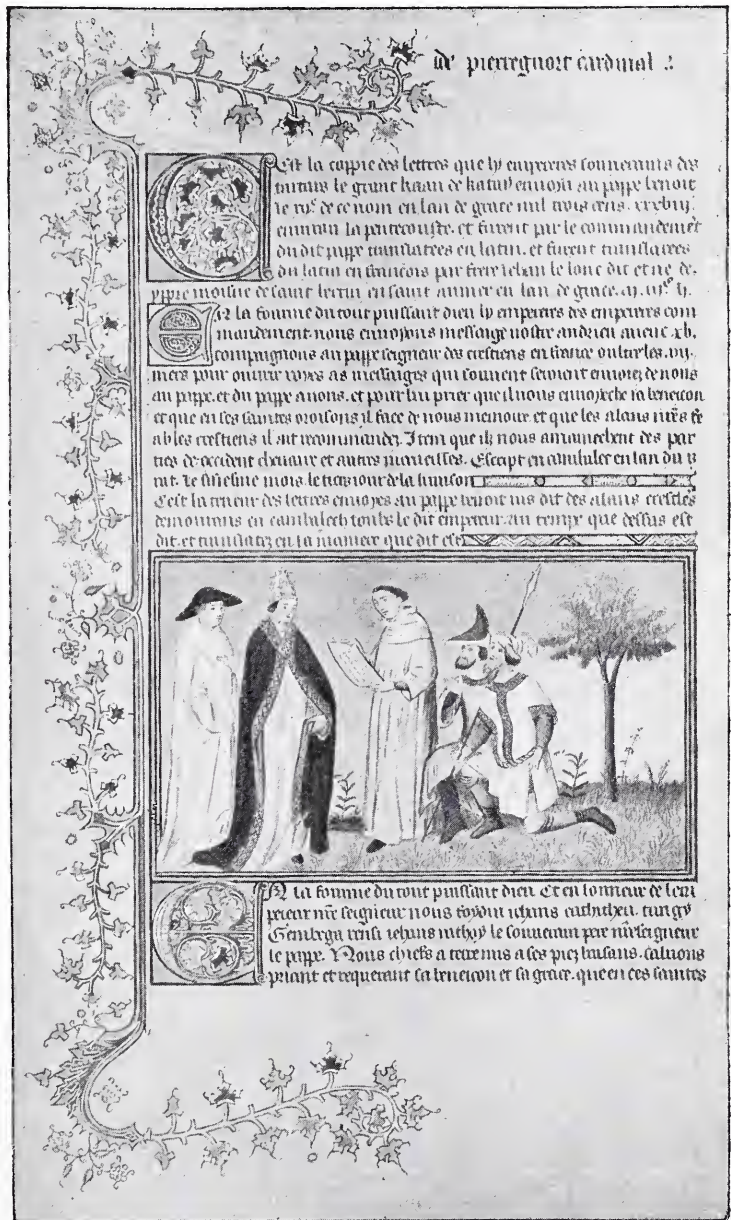 de pierreguort cardinal :
Cest la coppie des lettres que ly empereres souuerains des
tartars le grant kaan de katay enuoya au pappe benoit
le de ce nom en lan de grace mil trois cens. xxxviij.
enuiron la penthecouste. et furent par le commandement
du dit pappe translatees en latin. et furent translatees
du latin en francois par frere iehan le lonc dit et ne de.
yppre moisne de saint bertin en saint aumer en lan de grace.
En la fourme du tout puissant dieu ly emperers des empereurs com
mandement. nous enuoyons messaige nostre andrieu auenc xv.
compaignons au pappe seigneur des crestiens en france oultre les. vij.
mers pour ouurir voyes as messaiges qui souuent seroient enuoiez de nous
au pappe. et du pappe a nous. et pour lui prier que il nous enuoyeche sa beneicon
et que en ses saintes oroisons il face de nous memoire. et que les alans nrēs fe
ables crestiens il ait recommandez. Item que ilz nous amainechent des par
ties de occident cheuaux et autres merueilles. Escript en cambalec en lan du
rat. le mois. le tiers iour de la
Cest la teneur des lettres enuoyes au pappe benoit sus dit des alans crestiēs
demourans en cambalech soubs le dit empereur. au temps que dessus est
dit. et translatez en la maniere que dit est
En la fourme du tout puissant dieu. Et en lonneur de lem
pereur nrē seigneur nous foydin iehans tungy
Gembega vensi iehans le souuerain pere nrē seigneur
le pappe. Nous chiefs a terre mis a ses piez baisans. saluons
priant et requerant sa beneicon et sa grace. que en ces saintes